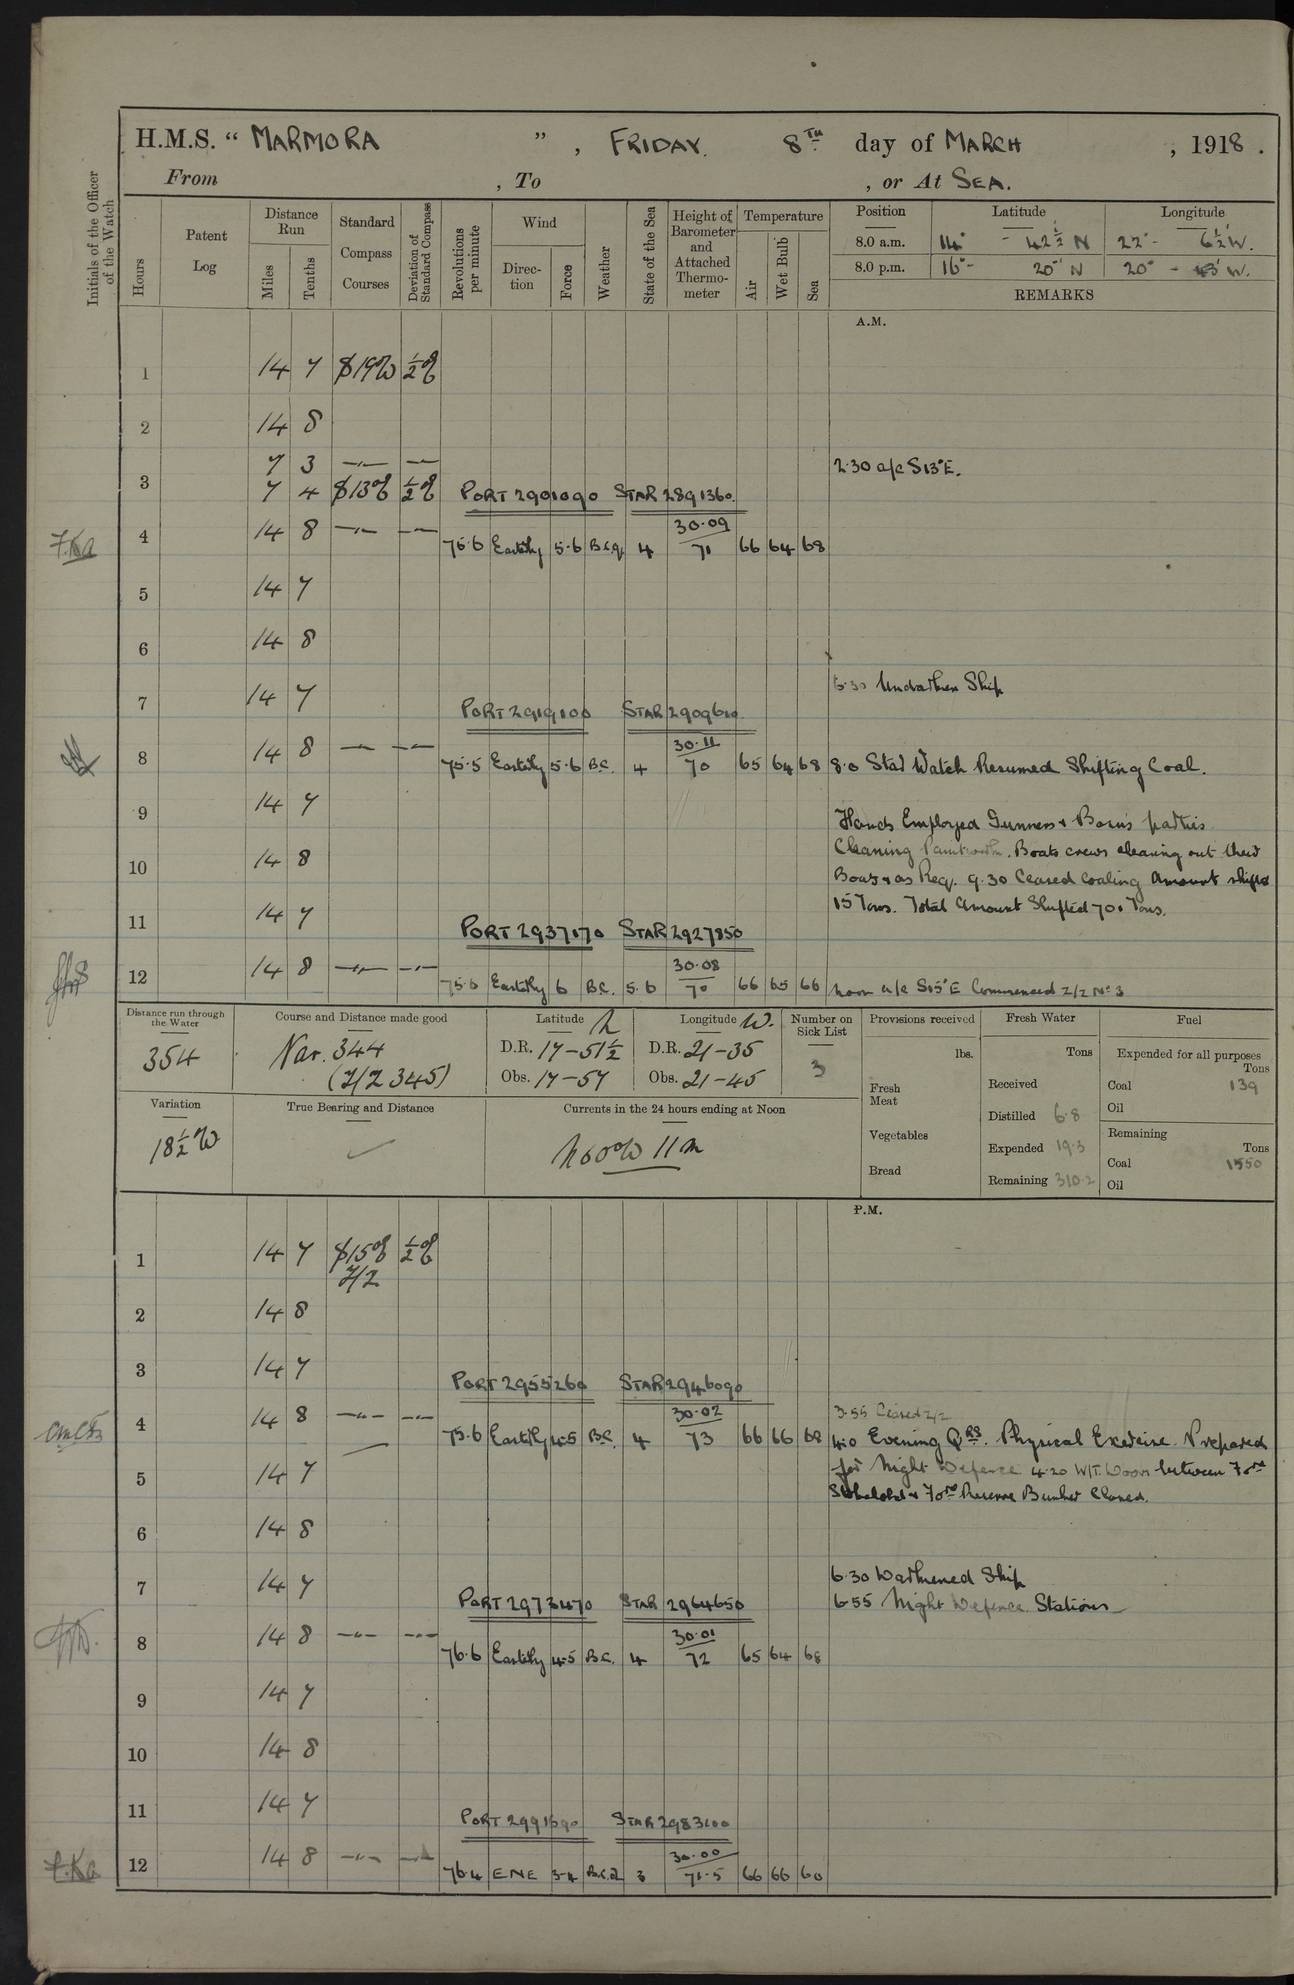 H.M.S. “ MARMORA ”, FRIDAY. 8TH day of MARCH, 1918.
From , To , or At SEA.
Initials of the Officer of the Watch
Hours
Patent Log
Distance Run
Miles
Tenths
Standard Compass Courses
Deviation of Standard Compass
Revolutions per minute
Wind
Direction
Force
Weather
State of the Sea
Height of Barometer and Attached Thermometer
Temperature
Air
Wet Bulb
Sea
Position Latitude Longitude
8.0 a.m. 14° - 42½ N 22° - 6½' W.
8.0 p.m. 16° - 20' N 20° - W.
REMARKS
A.M.
1 14 7 S19W ½E
2 14 8
7 3 —"— —
2.30 a/c S13°E.
3 7 4 S13E ½E PORT 2901090 STAR 2891360.
4 14 8 —"— —"— 75.6 Easterly 5.6 B.c.q. 4 30.09 71 66 64 68
5 14 7
6 14 8
7 14 7
6.30 Undarken Ship
PORT 2919100 STAR 2909610
8 14 8 —"— —"— 75.5 Easterly 5.6 B.C. 4 30.11 70 65 64 68
8.0 Star Watch Resumed Shifting Coal.
9 14 7
Hands Employed Gunners & Bosns parties
Cleaning Paintwork. Boats crews cleaning out their
10 14 8
Boats & as Req. 9.30 Ceased Coaling Amount shifted
15 Tons. Total Amount Shifted 701 Tons.
11 14 7 PORT 2937170 STAR 2927850
12 14 8 —"— —"— 75.6 Easterly 6 B.C. 5.6 30.08 70 66 65 66
Noon a/c S15°E Commenced Z/Z No 3
Distance run through the Water
354
Course and Distance made good
Nar. 344
(Z/Z 345)
Latitude N
D.R. 17-51½
Obs. 17-57
Longitude W.
D.R. 21-35
Obs. 21-45
Number on Sick List
3
Provisions received
lbs.
Fresh Meat
Vegetables
Bread
Fresh Water
Tons
Received
Distilled 6.8
Expended 19.3
Remaining 310.2
Fuel
Expended for all purposes
Tons
Coal 139
Oil
Remaining
Tons
Coal 1550
Oil
Variation
18½W
True Bearing and Distance
Currents in the 24 hours ending at Noon
N60W 11m
P.M.
1 14 7 S15E ½E
Z/Z
2 14 8
3 14 7
PORT 2955260 STAR 2946090
3.55 Ceased Z/Z
4 14 8 —"— —"— 75.6 Easterly 4.5 B.C. 4 30.02 73 66 66 68
4.0 Evening QRS. Physical Exercise. Prepared
for Night Defence 4.20 W/T. Doors between Forrd
5 14 7
Stokehold & Forrd Reserve Bunker Closed.
6 14 8
6.30 Darkened Ship
7 14 7
6.55 Night Defence Stations
PORT 2973470 STAR 2964650
8 14 8 —"— —"— 76.6 Easterly 4.5 B.C. 4 30.01 72 65 64 68
9 14 7
10 14 8
11 14 7
PORT 2991690 STAR 2983100
12 14 8 —"— —"— 76.4 ENE 3-4 3 30.00 71.5 66 66